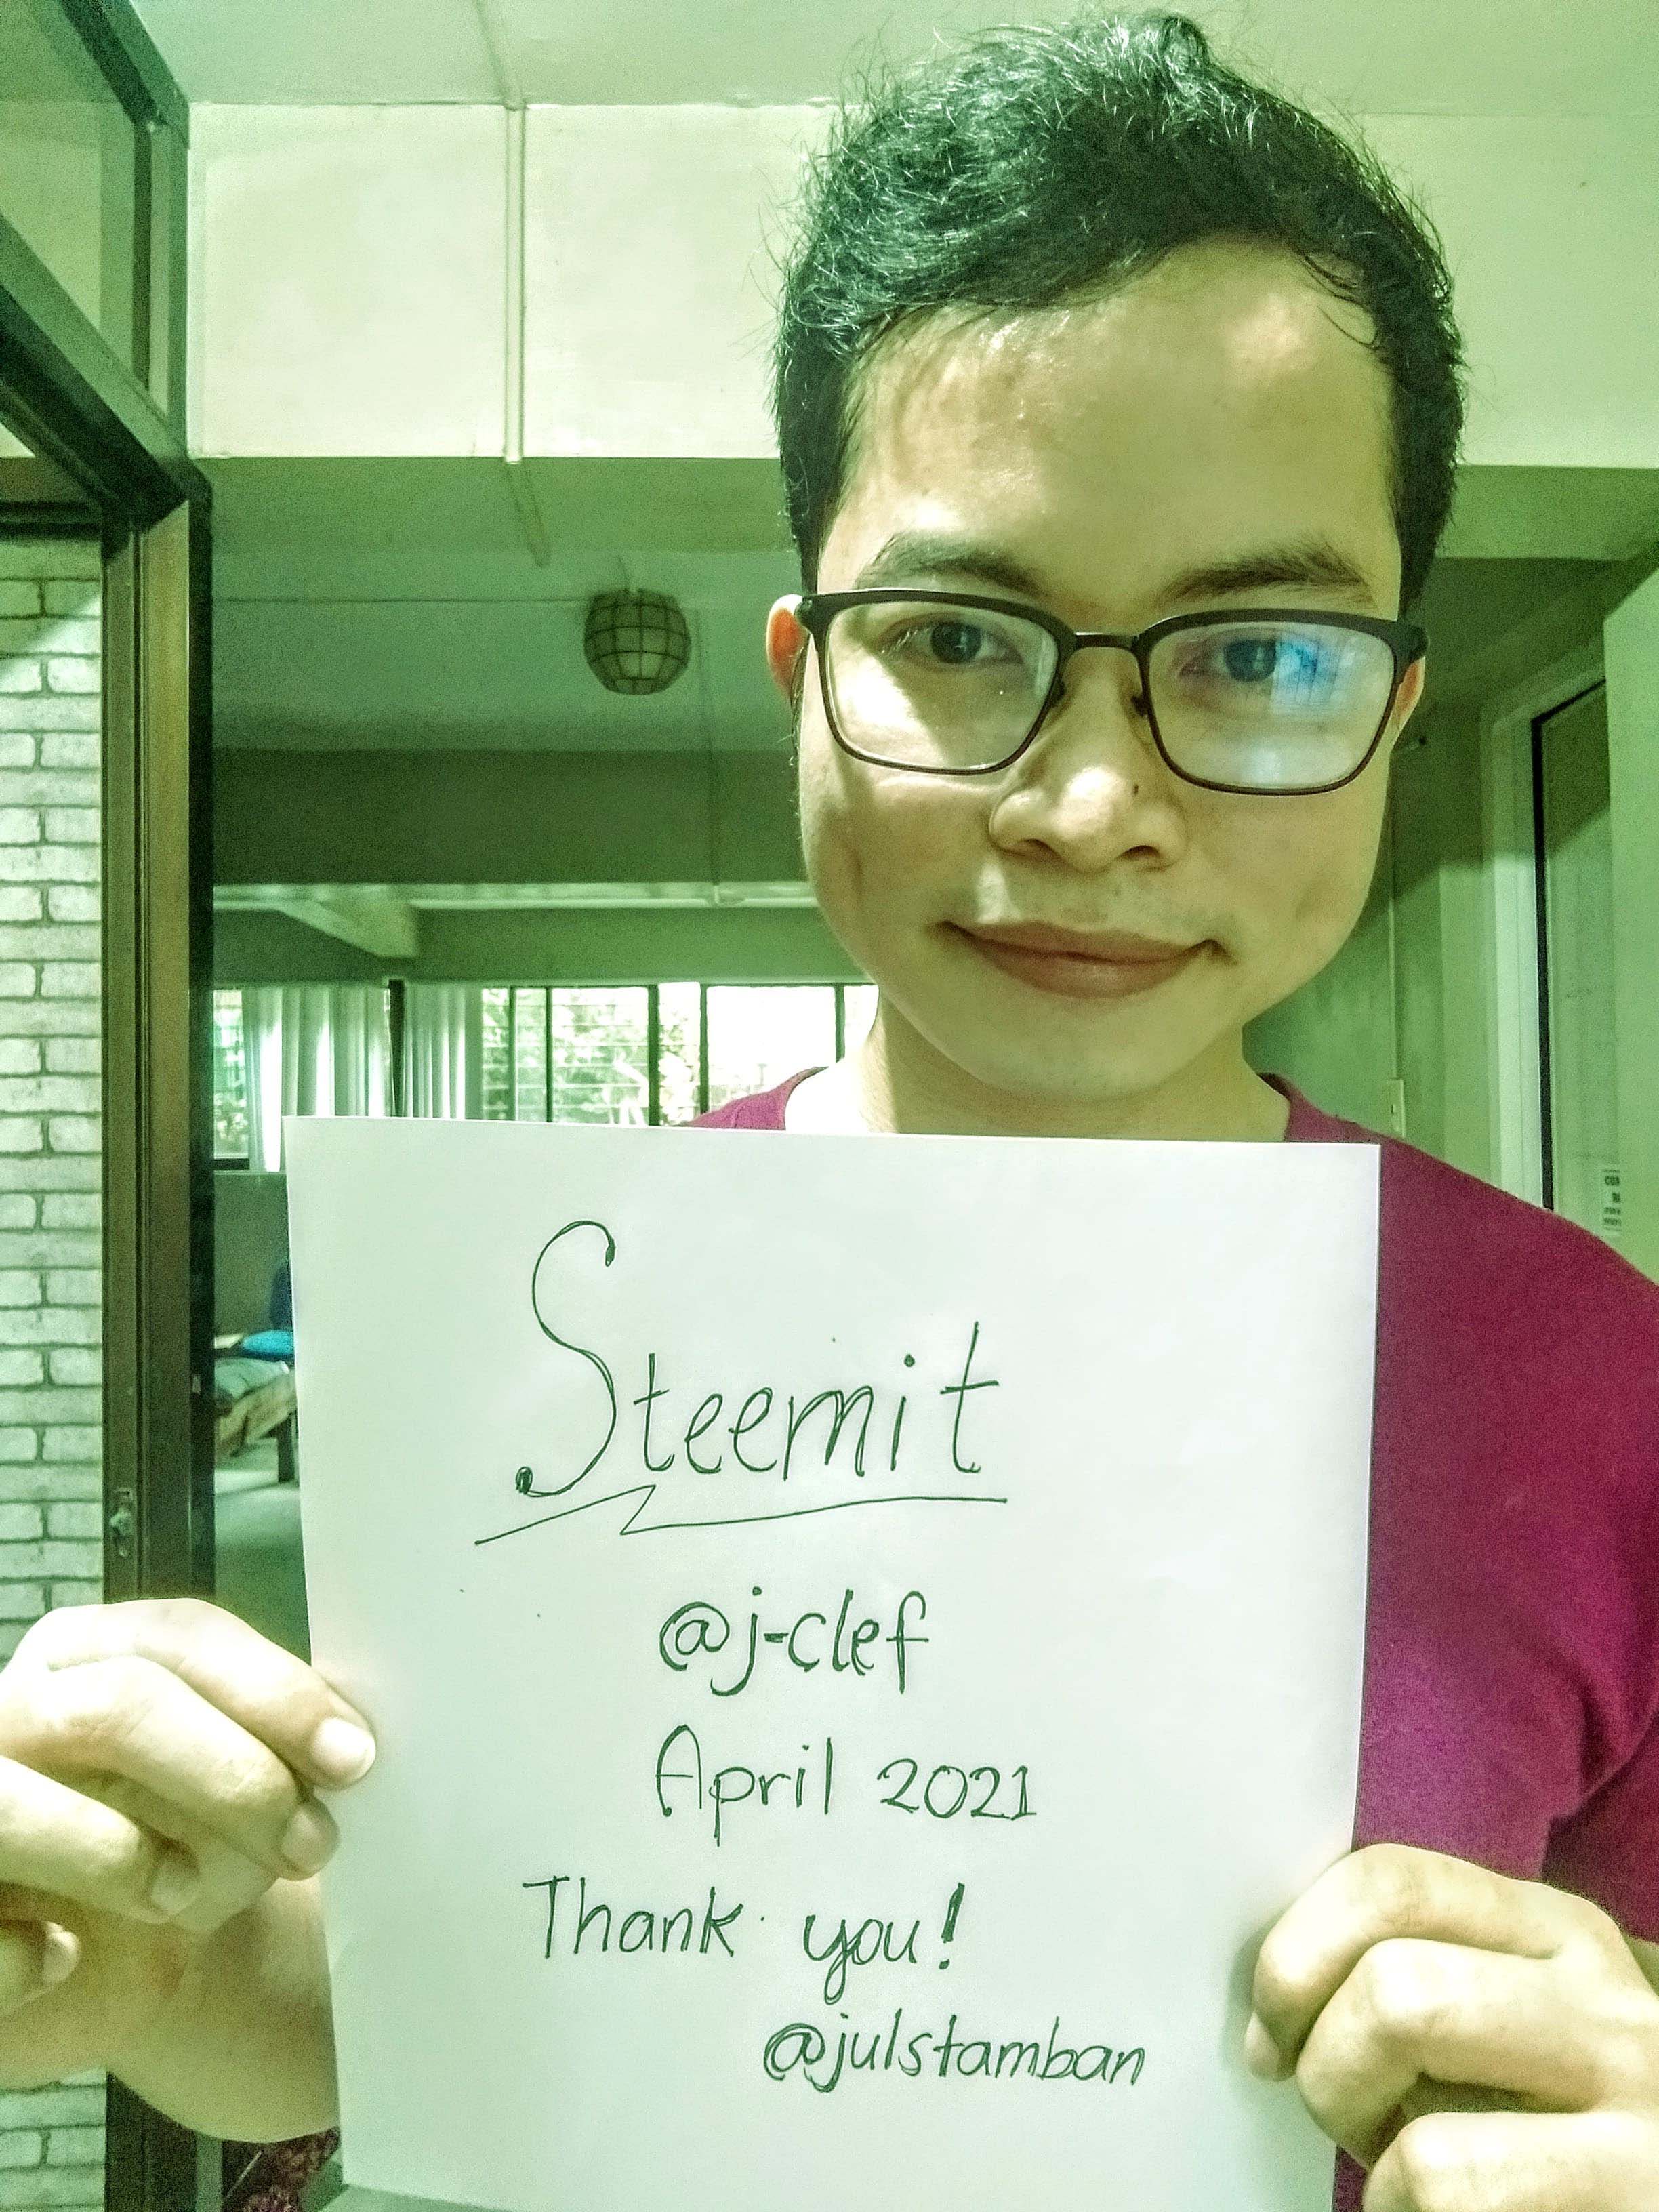 Steemit
@j-clef
April 2021
Thank you!
@julstamban